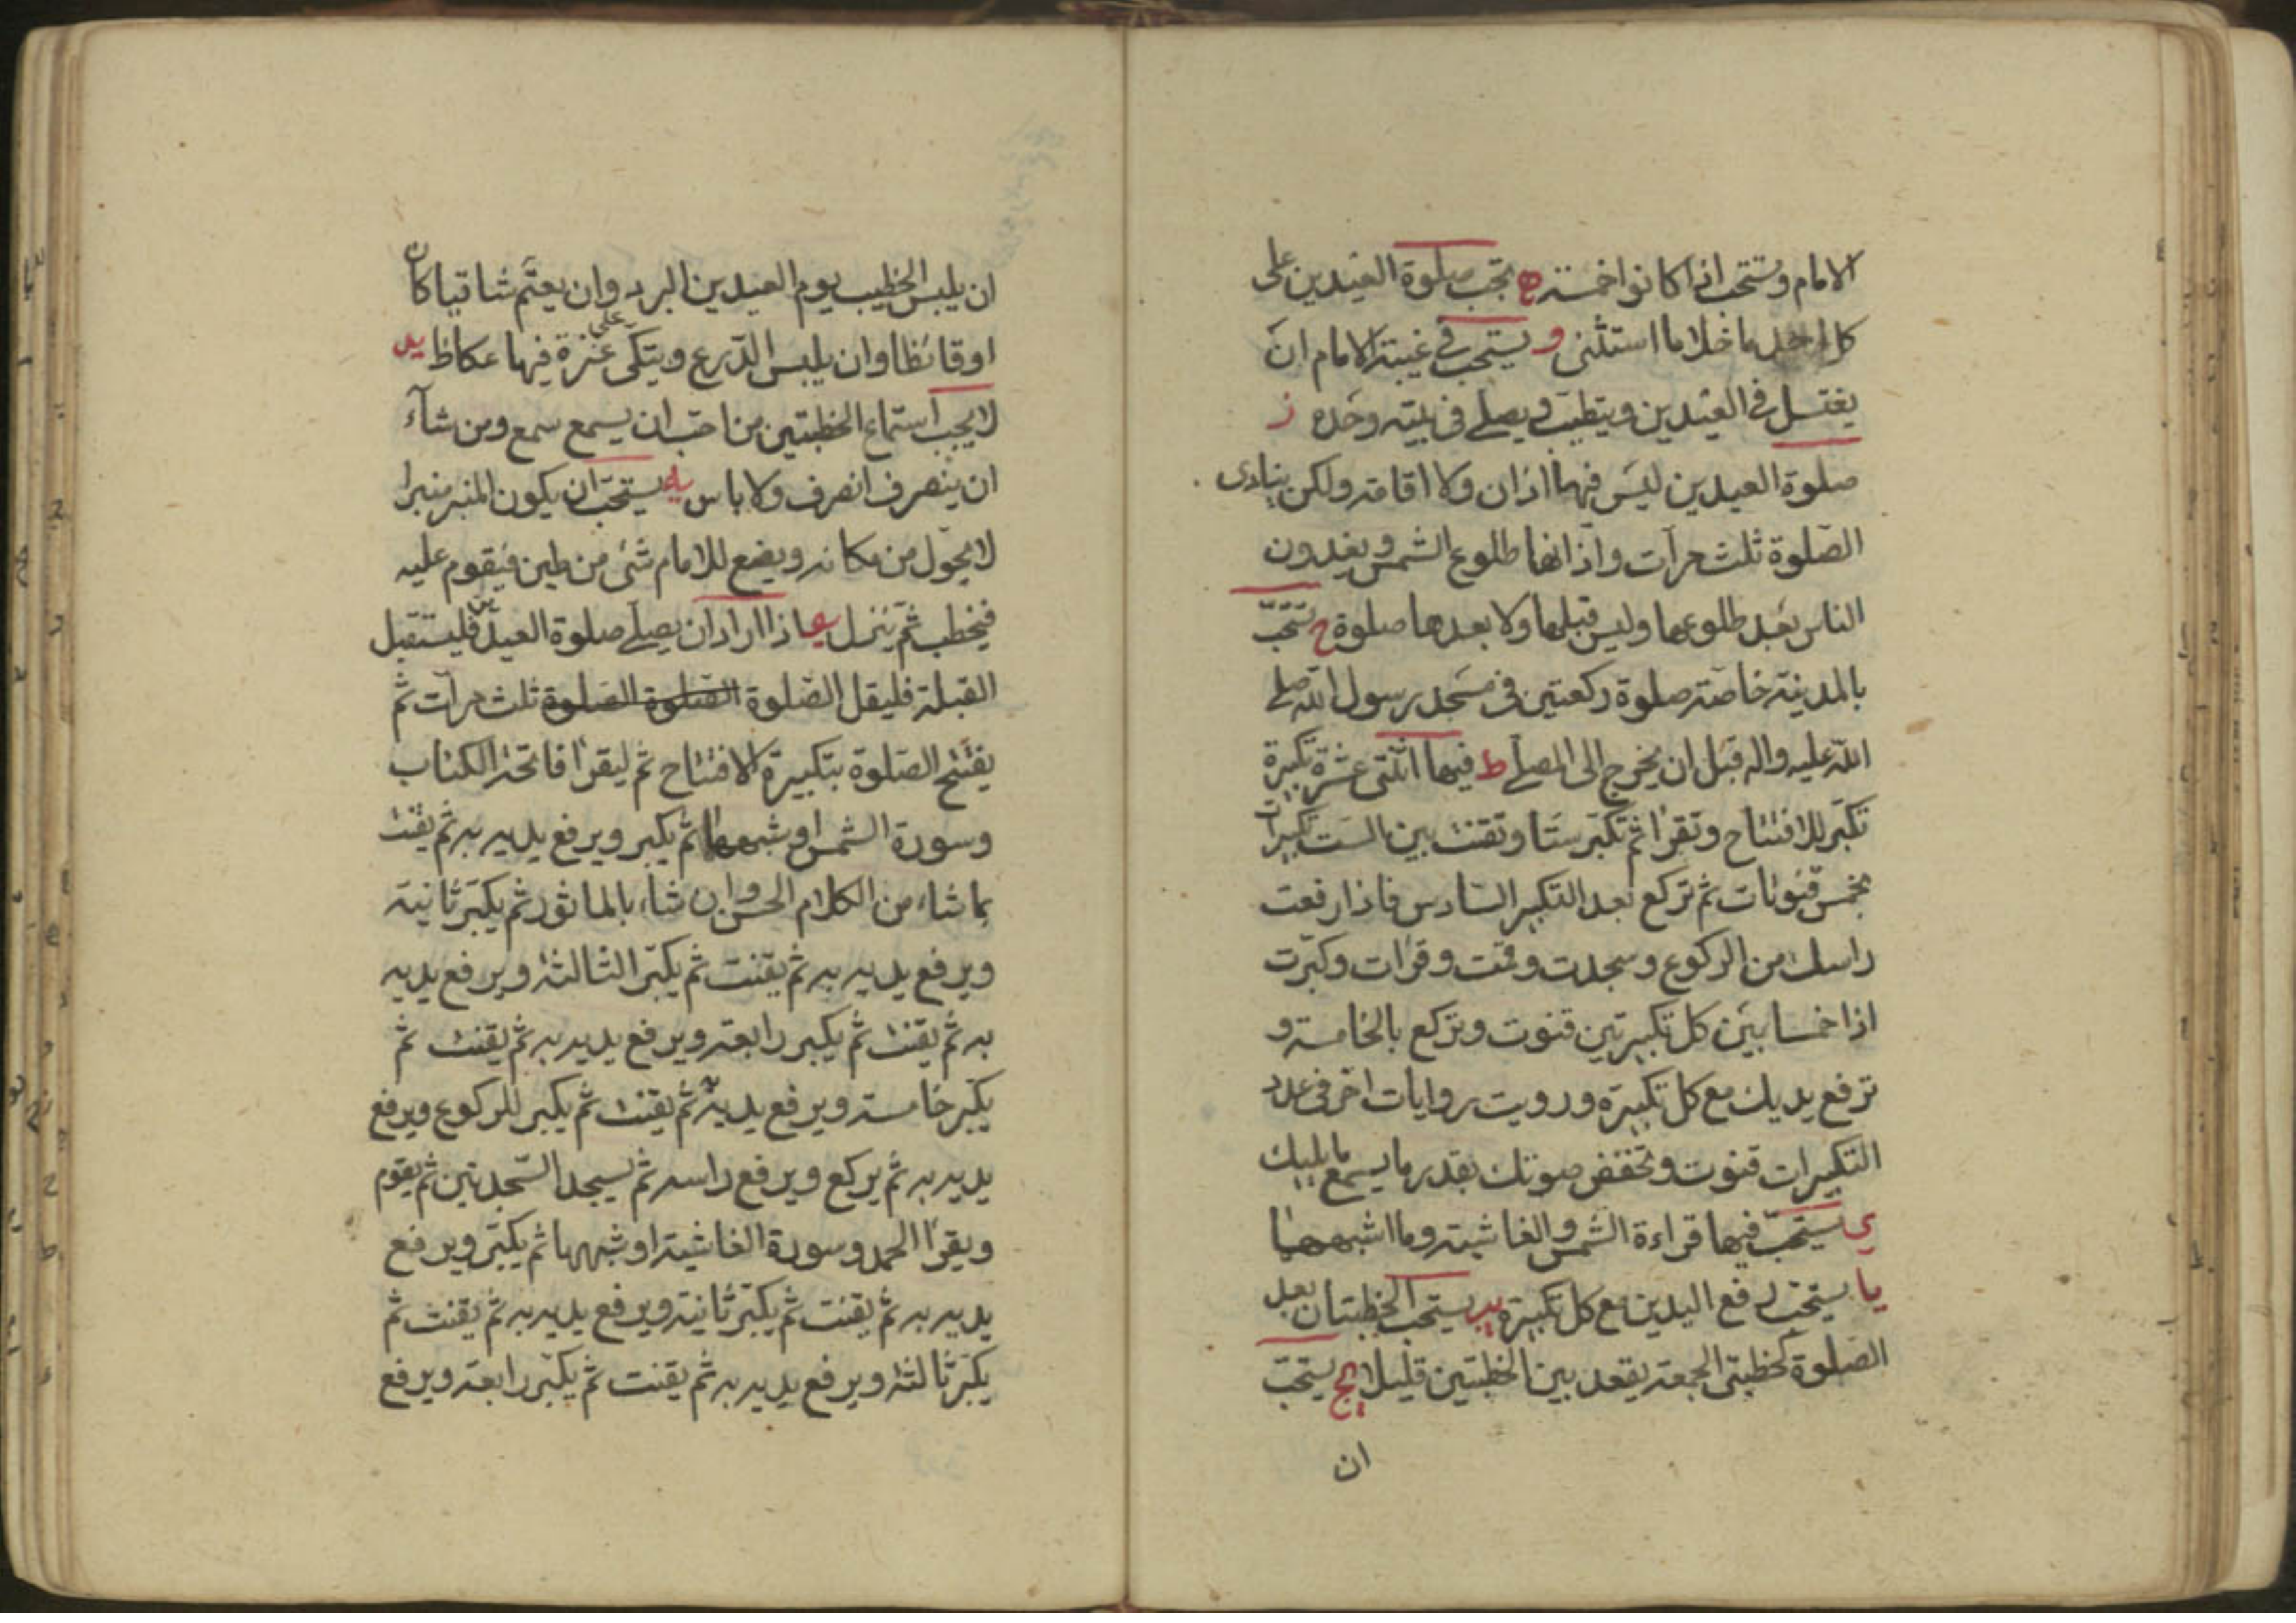 الامام ويستحب اذا كانوا خمسة ه تجب صلوة العيدين على
كل احد ما خلا ما استثنى و يستحب فى غيبة الامام ان
يغتسل فى العيدين ويتطيب ويصلى فى بيته وحده ز
صلوة العيدين ليس فيهما اذان ولا اقامة ولكن ينادى
الصلوة ثلث مرات واذانها طلوع الشمس ويغدون
الناس بعد طلوعها وليس قبلها ولا بعدها صلوة ح تستحب
بالمدينة خاصة صلوة ركعتين فى مسجد رسول الله صلى
الله عليه واله قبل ان يخرج الى المصلى ط فيها اثنتى عشرة تكبيرة
تكبر للافتتاح وتقرا ثم تكبر ستا وتقنت بين الست تكبيرات
بخمس قنوتات ثم تركع بعد التكبير السادس فاذا رفعت
راسك من الركوع وسجدت وقمت وقرات وكبرت
اذا خمسا بين كل تكبيرتين قنوت وتركع بالخامسة و
ترفع يديك مع كل تكبيرة ورويت روايات اخر فى عدد
التكبيرات قنوت وتخفض صوتك بقدر ما يسمع ما يليك
ى يستحب فيها قراءة الشمس والغاشية وما اشبههما
يا يستحب رفع اليدين مع كل تكبيرة يب يستحب الخطبتان بعد
الصلوة كخطبتى الجمعة يقعد بين الخطبتين قليلا يج يستحب
ان
ان يلبس الخطيب يوم العيدين البرد وان يعتم شاتيا كان
او قائظا وان يلبس الدرع ويتكى على عنزة فيها عكاظ يد
لا يجب استماع الخطبتين من احب ان يسمع سمع ومن شآء
ان ينصرف انصرف ولا باس يه يستحب ان يكون المنبر منبرا
لا يحول من مكانه ويضع للامام شئ من طين فيقوم عليه
فيخطب ثم ينزل يو اذا اراد ان يصلى صلوة العيدين فليستقبل
القبلة فليقل الصلوة الصلوة الصلوة ثلث مرات ثم
يفتتح الصلوة بتكبيرة الافتتاح ثم ليقرا فاتحة الكتاب
وسورة الشمس او شبهها ثم يكبر ويرفع يديه به ثم يقنت
بما شاء من الكلام الحسن وان شاء بالماثور ثم يكبر ثانية
ويرفع يديه به ثم يقنت ثم يكبر الثالثة ويرفع يديه
به ثم يقنت ثم يكبر رابعة ويرفع يديه به ثم يقنت ثم
يكبر خامسة ويرفع يديه به ثم يقنت ثم يكبر للركوع ويرفع
يديه به ثم يركع ويرفع راسه ثم يسجد السجدتين ثم يقوم
ويقرا الحمد وسورة الغاشية او شبهها ثم يكبر ويرفع
يديه به ثم يقنت ثم يكبر ثانية ويرفع يديه به ثم يقنت ثم
يكبر ثالثة ويرفع يديه به ثم يقنت ثم يكبر رابعة ويرفع